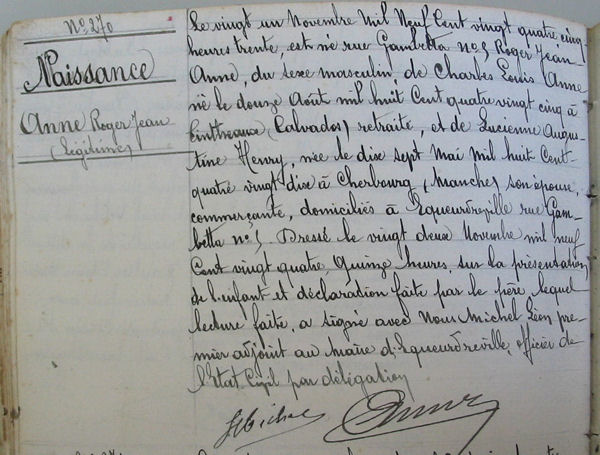 N° 270
Naissance
Anne Roger Jean
(Légitime)
Le vingt un Novembre Mil Neuf Cent vingt quatre cinq
heures trente, est né rue Gambetta n° 5 Roger Jean
Anne, du sexe masculin, de Charles Louis Anne
né le douze Août mil huit Cent quatre vingt cinq à
(Calvados) retraité, et de Lucienne Augus-
tine Henry, née le dix sept Mai Mil huit Cent-
quatre vingt dix à Cherbourg (Manche) son épouse,
commerçante, domiciliés à Equeurdreville rue Gam-
betta n° 5 Dressé le vingt deux Novembre mil neuf
Cent vingt quatre, Quinze heures, sur la présentation
de l'enfant et déclaration faite par le père lequel
lecture faite, a signé avec Nous Michel Léon pre-
mier adjoint au Maire d'Equeurdreville, officier de
l'Etat Civil par délégation
LMichel Anne